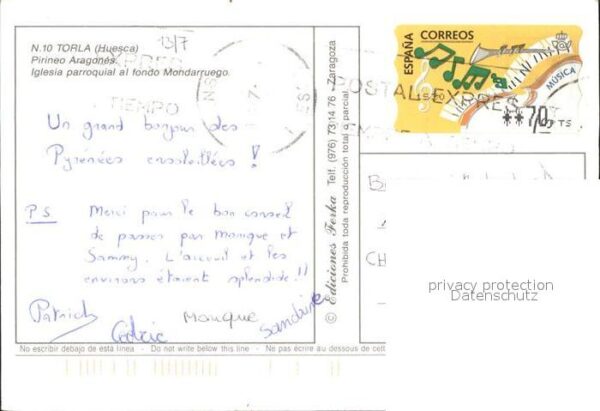 N.10 TORLA (Huesca)
Pirineo Aragonés.
Iglesia parroquial al fondo Mondarruego.
13/7
TIEMPO
POSTAL EXPRE
Un grand bonjour des
Pyrénées ensoleillées !
PS Merci pour le bon conseil
de passer par Monique et
Sammy. L'accueil et les
environs étaient splendide !!
Patrick
Cédric
Monique
Sandrine
No escribir debajo de esta línea - Do not write below this line - Ne pas écrire au dessous de cette
© Ediciones Ferka Telf. (976) 73 14 76 - Zaragoza
Prohibida toda reproducción total o parcial.
ESPAÑA
CORREOS
MÚSICA
**70 PTS
CH
privacy protection
Datenschutz